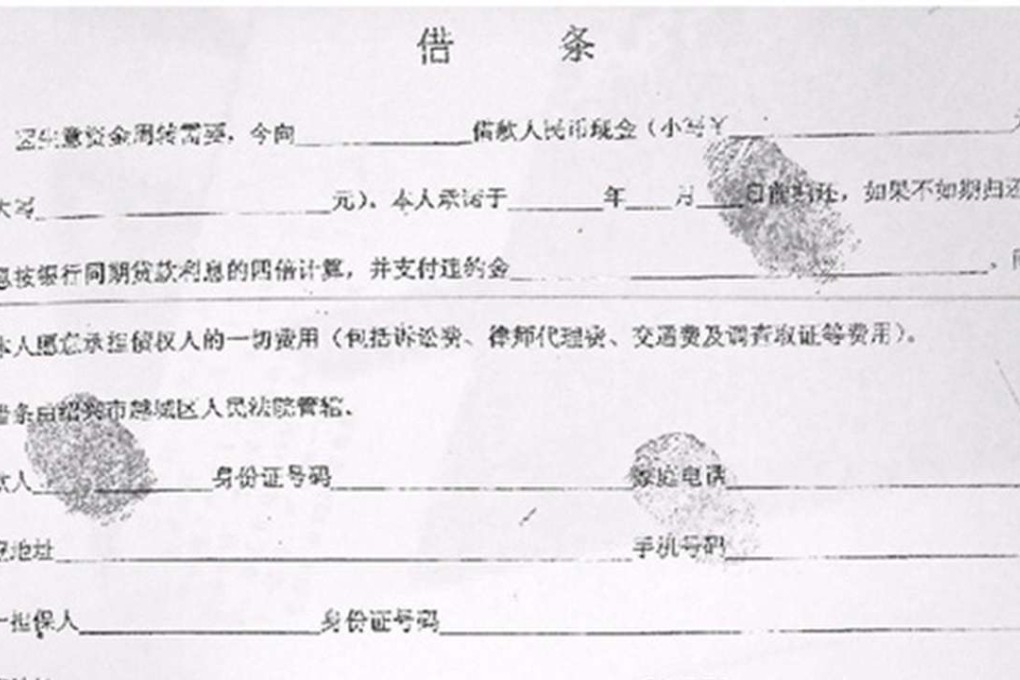 借 条
生意资金周转需要，今向__________借款人民币现金（小写￥__________
大写__________元）。本人承诺于______年___月___日前归还，如果不如期归还
息按银行同期贷款利息的四倍计算，并支付违约金__________。
本人愿意承担债权人的一切费用（包括诉讼费、律师代理费、交通费及调查取证等费用）。
借条由绍兴市越城区人民法院管辖。
款人__________身份证号码__________家庭电话__________
地址__________手机号码__________
担保人__________身份证号码__________